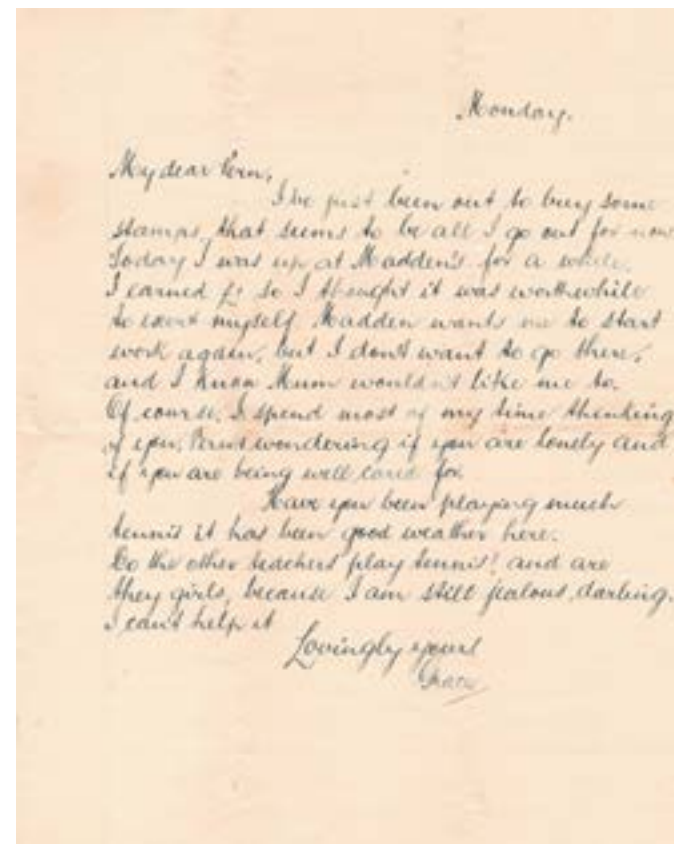 Monday.
My dear
I've just been out to buy some
stamps, that seems to be all I go out for now
Today I was up at Madden's for a while.
I earned £1 so I thought it was worthwhile
to exert myself. Madden wants me to start
work again, but I don't want to go there,
and I know Mum wouldn't like me to.
Of course, I spend most of my time thinking
of you, wondering if you are lonely and
if you are being well cared for.
Have you been playing much
tennis it has been good weather here.
Do the other teachers play tennis? and are
they girls, because I am still jealous, darling.
I can't help it
Lovingly yours